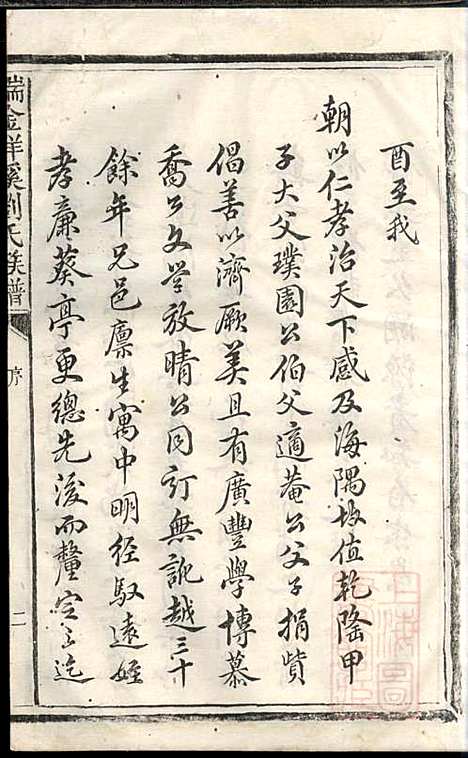 酉至我
朝以仁孝治天下感及海隅故值乾隆甲
子大父璞園公伯父適菴公父子捐貲
倡善以濟厥美且有廣豐學博慕
喬公文學放晴公同訂無訛越三十
餘年兄邑廪生寓中明徑馭遠姪
孝廉葵亭更總先後而釐定之迄
瑞金祥溪劉氏族譜
序
二